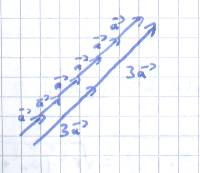 a⃗
a⃗
a⃗
a⃗
a⃗
a⃗
3a⃗
3a⃗